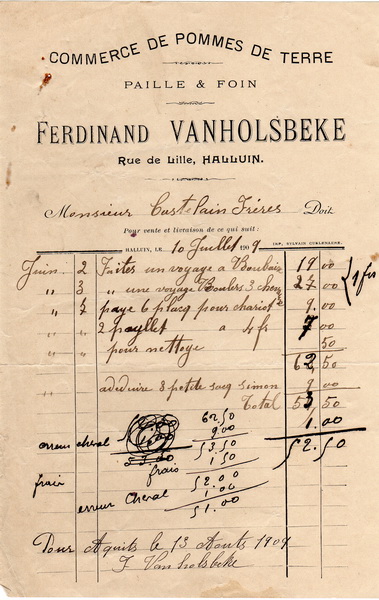 COMMERCE DE POMMES DE TERRE
PAILLE & FOIN
FERDINAND VANHOLSBEKE
Rue de Lille, HALLUIN.
Monsieur Castelain Frères Doit
Pour vente et livraison de ce qui suit:
HALLUIN, LE 10 Juillet 1909 IMP. SYLVAIN
Juin 2 Faites un voyage a Roubaix 19 00
" 3 " une voyage 3 27 00 1 fr
" 4 paye 6 pour chariot 9.00
" " 2 a 4 fr 00
" " pour nettoye 50
62,50
" " 8 petite simon 9 00
Total 53,50
erreur cheval 62,50 1.00
9.00 52.50
53.00 53.50
frais frais 1.50
52.00
erreur cheval 1.00
51.00
Pour Aquits le 13 Aouts 1909
F Vanholsbeke